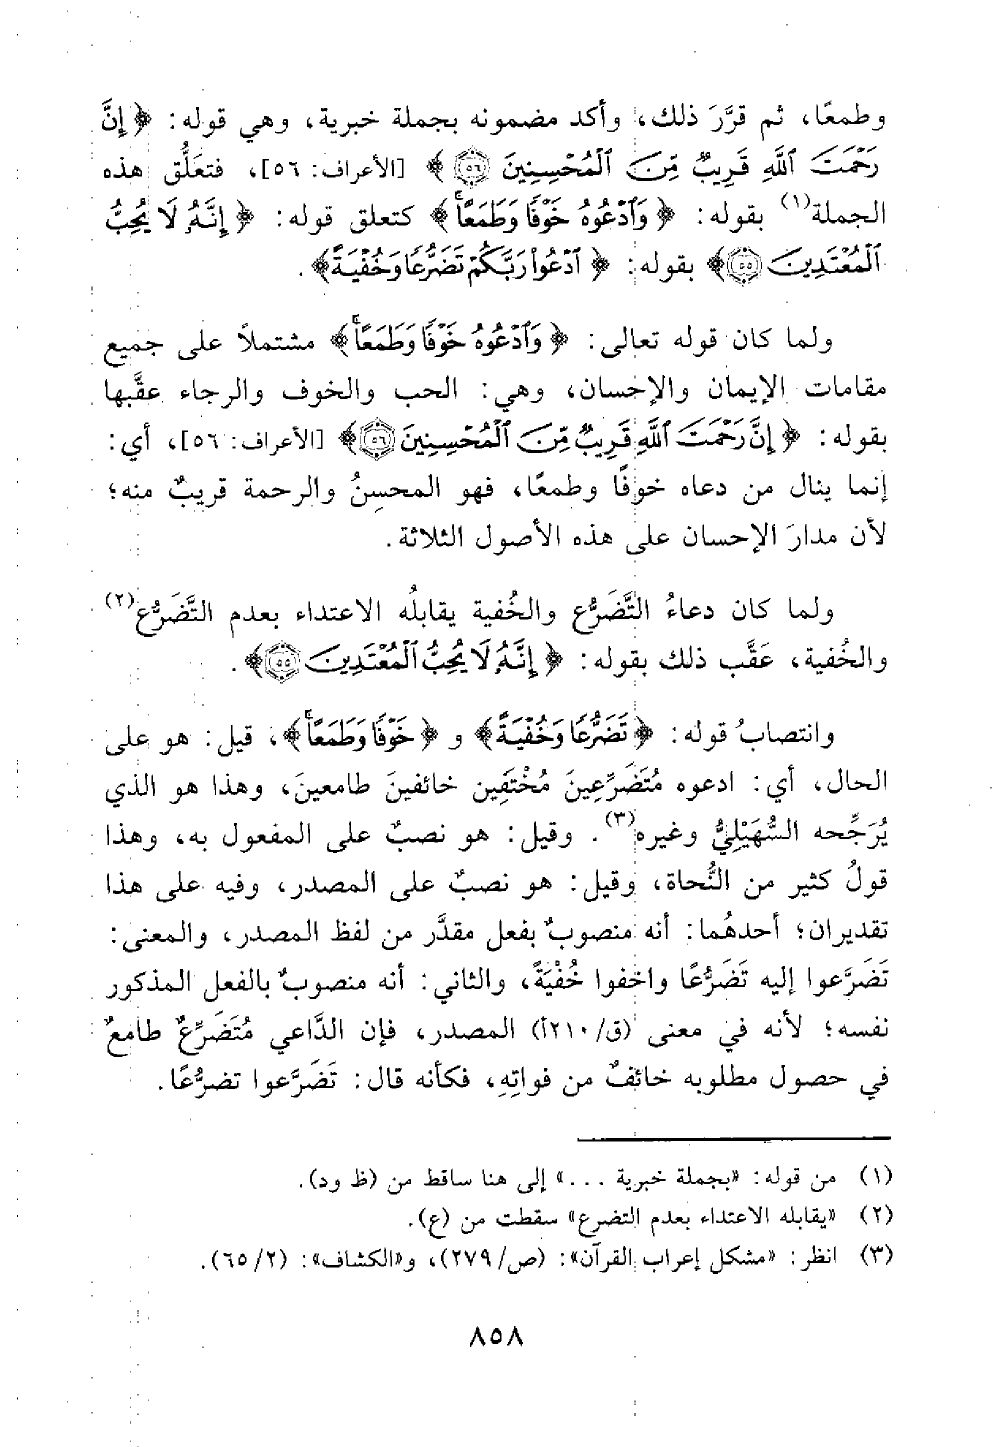 وطمعًا، ثم قرَّرَ ذلك، وأكد مضمونه بجملة خبرية، وهي قوله: ﴿ إِنَّ
رَحْمَتَ ٱللَّهِ قَرِيبٌ مِّنَ ٱلْمُحْسِنِينَ ۝٥٦ ﴾ [الأعراف: ٥٦]، فتعلُّق هذه
الجملة(١) بقوله: ﴿ وَٱدْعُوهُ خَوْفًا وَطَمَعًا ۚ﴾ كتعلق قوله: ﴿ إِنَّهُۥ لَا يُحِبُّ
ٱلْمُعْتَدِينَ ۝٥٥﴾ بقوله: ﴿ ٱدْعُوا۟ رَبَّكُمْ تَضَرُّعًا وَخُفْيَةً ۚ﴾.
ولما كان قوله تعالى: ﴿ وَٱدْعُوهُ خَوْفًا وَطَمَعًا ۚ﴾ مشتملاً على جميع
مقامات الإيمان والإحسان، وهي: الحب والخوف والرجاء عقَّبها
بقوله: ﴿ إِنَّ رَحْمَتَ ٱللَّهِ قَرِيبٌ مِّنَ ٱلْمُحْسِنِينَ ۝٥٦﴾ [الأعراف: ٥٦]، أي:
إنما ينال من دعاه خوفًا وطمعًا، فهو المحسنُ والرحمة قريبٌ منه؛
لأن مدارَ الإحسان على هذه الأصول الثلاثة.
ولما كان دعاءُ التَّضَرُّع والخُفية يقابلُه الاعتداء بعدم التَّضَرُّع(٢)
والخُفية، عَقَّب ذلك بقوله: ﴿ إِنَّهُۥ لَا يُحِبُّ ٱلْمُعْتَدِينَ ۝٥٥﴾.
وانتصابُ قوله: ﴿ تَضَرُّعًا وَخُفْيَةً ﴾ و ﴿ خَوْفًا وَطَمَعًا ۚ﴾، قيل: هو على
الحال، أي: ادعوه مُتَضَرِّعِينَ مُخْتَفِين خائفينَ طامعينَ، وهذا هو الذي
يُرَجِّحه السُّهَيْلِيُّ وغيره(٣). وقيل: هو نصبٌ على المفعول به، وهذا
قولُ كثير من النُّحاة، وقيل: هو نصبٌ على المصدر، وفيه على هذا
تقديران؛ أحدهُما: أنه منصوبٌ بفعل مقدَّر من لفظ المصدر، والمعنى:
تَضَرَّعوا إليه تَضَرُّعًا واخفوا خُفْيَةً، والثاني: أنه منصوبٌ بالفعل المذكور
نفسه؛ لأنه في معنى (ق/٢١٠أ) المصدر، فإن الدَّاعي مُتَضَرِّعٌ طامعٌ
في حصول مطلوبه خائفٌ من فواتِهِ، فكأنه قال: تَضَرَّعوا تضرُّعًا.
(١) من قوله: «بجملة خبرية ...» إلى هنا ساقط من (ظ ود).
(٢) «يقابله الاعتداء بعدم التضرع» سقطت من (ع).
(٣) انظر: «مشكل إعراب القرآن»: (ص/٢٧٩)، و«الكشاف»: (٢/ ٦٥).
٨٥٨